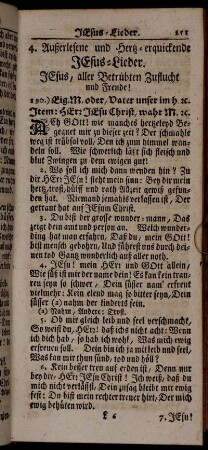 JEsus-Lieder. 251
4. Außerlesene und Hertz-erquickende
JEsus-Lieder.
JEsus, aller Betrübten Zuflucht
und Freude!
190.) Eig. M. oder, Vater unser im h. ꝛc.
Item: HErr JEsu Christ, wahr M. ꝛc.
ACh GOtt! wie manches hertzeleyd Be-
gegnet mir zu dieser zeit? Der schmahle
weg ist trübsal voll, Den ich zum himmel wan-
deln soll. Wie schwerlich läst sich fleisch und
blut Zwingen zu dem ewigen gut!
2. Wo soll ich mich dann wenden hin? Zu
dir HErr JEsu! steht mein sinn: Bey dir mein
hertz trost, hülff und rath Allzeit gewiß gefun-
den hat. Niemand jemahls verlassen ist, Der
getraut hat auf JEsum Christ.
3. Du bist der grosse wunder-mann, Das
zeigt dein amt und person an. Welch wunder-
ding hat man erfahren, Daß du, mein GOtt!
bist mensch gebohren, Und führest uns durch dei-
nen tod Gantz wunderlich aus aller noth!
4. JEsu! mein HErr und GOtt allein,
Wie süß ist mir der name dein! Es kan kein trau-
ren seyn so schwer, Dein süsser nam' erfreut
vielmehr: Kein elend mag so bitter seyn, Dein
süsser (2) nahm der linderts fein.
(2) Nahm, Andere: Trost.
5. Ob mir gleich leib und seel verschmacht,
So weist du, HErr! daß ichs nicht acht: Wenn
ich dich hab, so hab ich wohl, Was mich ewig
erfreuen soll. Dein bin ich ja mit leib und seel,
Was kan mir thun sünd, tod und höll?
6. Kein besser treu auf erden ist, Denn nur
bey dir, HErr JEsu Christ! Ich weiß, daß du
mich nicht verläßst, Dein zusag bleibt mir ewig
fest: Du bist mein rechter treuer hirt, Der mich
ewig behüten wird.
L 6 7. JEsu!